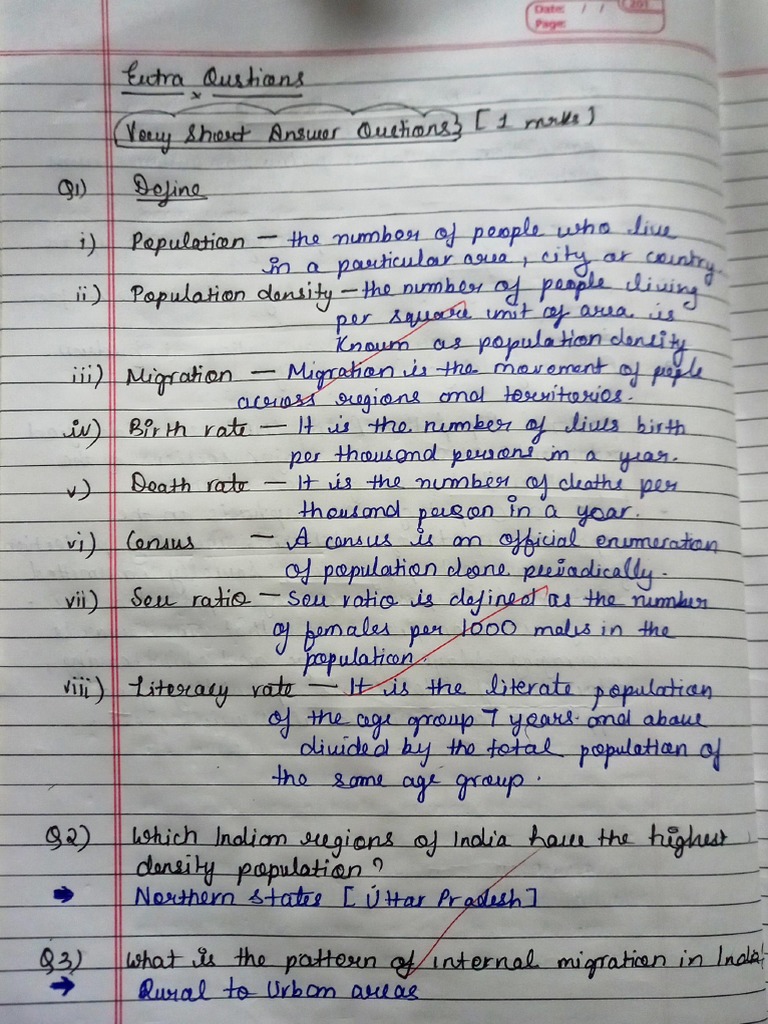 Date: / / 201
Page:
Extra Qustians
Very Short Answer Quetians} [1 mrks)
Q1) Define
i) Population — the number of people who live
in a particular area, city or country.
ii) Population density — the number of people living
per square unit of area is
Known as population density
iii) Migration — Migration is the movement of peple
across regions and territories.
iv) Birth rate — It is the number of lives birth
per thousand persons in a year.
v) Death rate — It is the number of deaths per
thousand person in a year.
vi) Census — A census is an official enumeration
of population done periadically.
vii) Sex ratio — Sex ratio is defined as the number
of females per 1000 males in the
population.
viii) Literacy rate — It is the literate population
of the age group 7 years and above
divided by the total population of
the same age group.
Q2) Which Indian regions of India have the highest
density population?
➔ Northern states [Uttar Pradesh]
Q3) What is the pattern of internal migration in India
➔ Rural to Urban areas